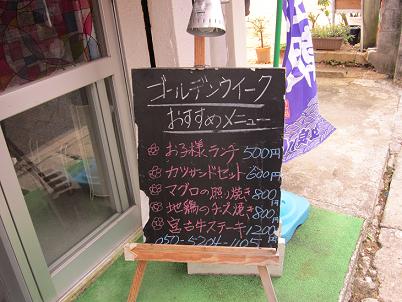 ゴールデンウイーク
おすすめメニュー
お子様ランチ 500円
カツサンドセット 600円
マグロの照り焼き 800円
地鶏のチーズ焼き 800円
宮古牛ステーキ 1200
050-5204-1105